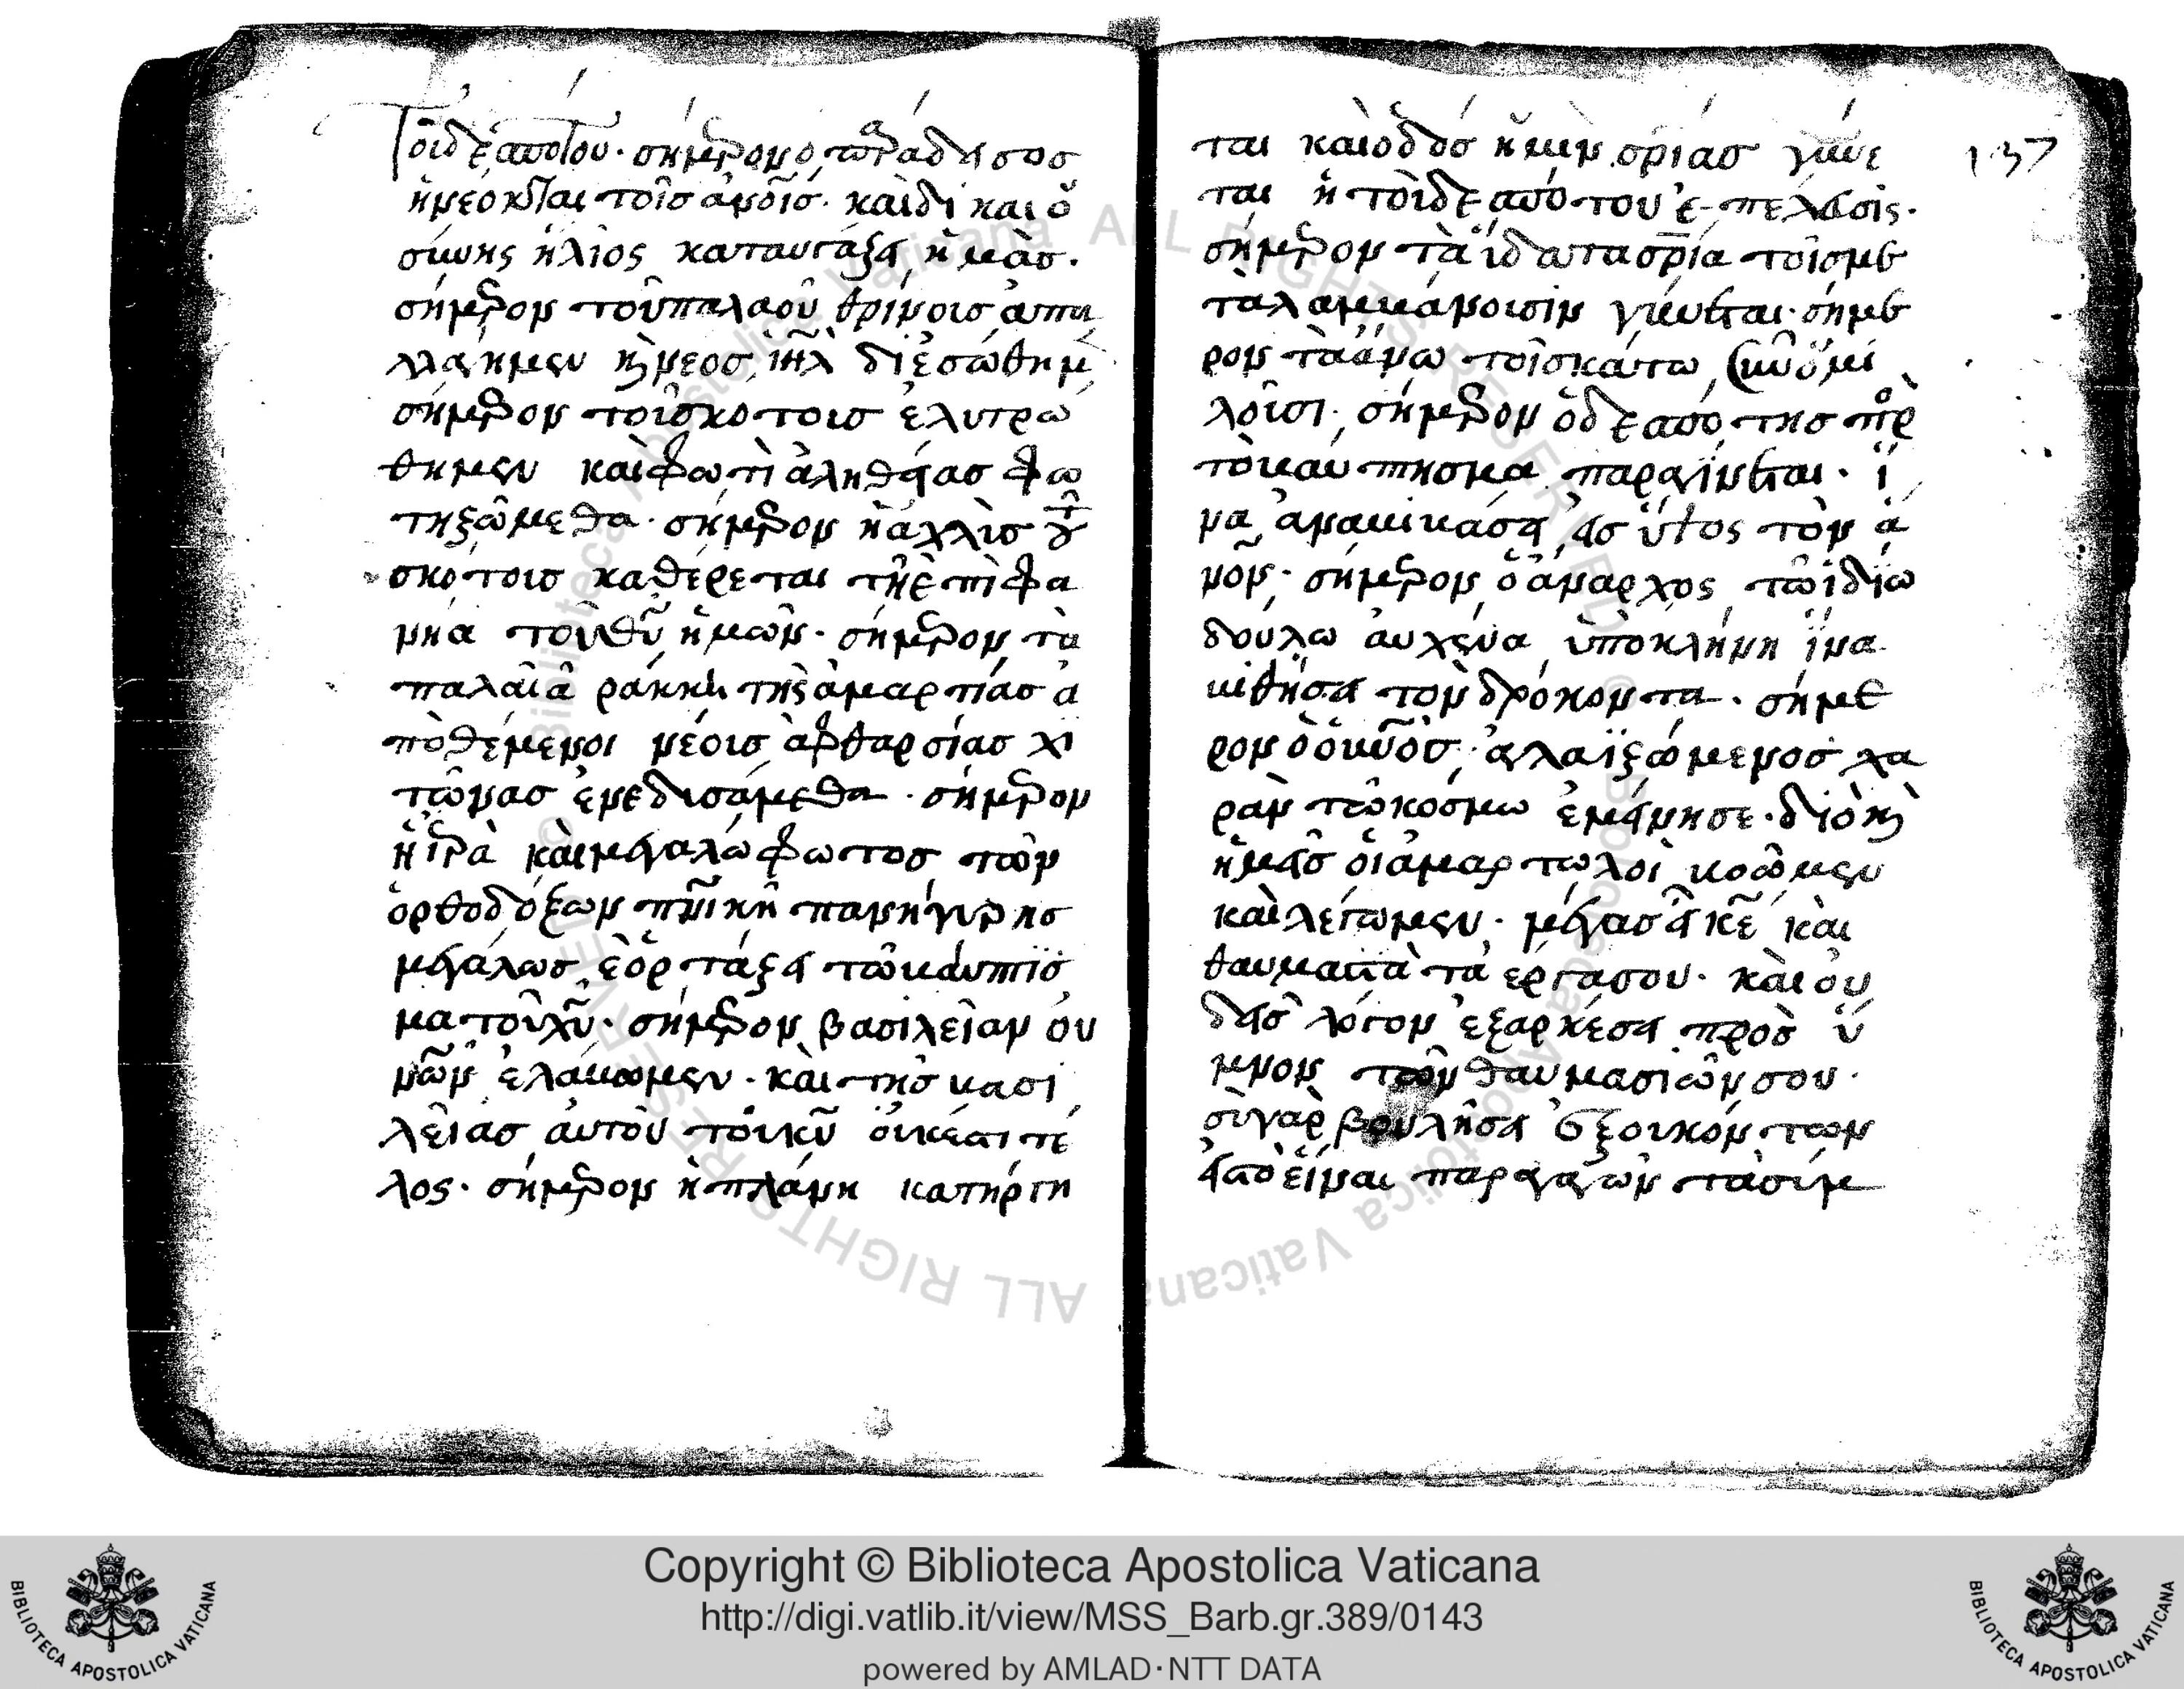 τοῦ δεσπότου· σήμερον ὁ παράδεισος
ἠνέωκται τοῖς ἀνοις· καὶ δικαιο
σύνης ἥλιος καταυγάζει ἡμᾶς·
σήμερον τοῦ παλαιοῦ θρίνοις ἀπη
λλάγημεν κ νέος ιηλ διεσώθημ
σήμερον τοῦ σκότοις ἐλυτρώ
θημεν καὶ φωτὶ ἀληθείας φω
τηζώμεθα· σήμερον ἡ ἀχλὺς τοῦ
σκότοις καθέρεται τῆ ἐπιφα
νήα τοῦ θυ ἡμῶν· σήμερον τὰ
παλαιὰ ράκκη τῆς ἁμαρτίας ἀ
ποθέμενοι νέοις ἀφθαρσίας χι
τῶνας ἐνεδισάμεθα· σήμερον
ἡ ἱερὰ καὶ μεγαλόφωτος τῶν
ὀρθοδόξων πνικὴ πανήγυρης
μεγάλως ἑορτάζει τῶ βάυπτισ
μα τοῦ χυ· σήμερον βασιλείαν ου
νῶν ἐλάβωμεν· καὶ τῆς βασι
λείας αὐτοῦ τοῦ κυ οὐκ ἔσται τέ
λος· σήμερον ἡ πλάνη κατήργη
ται καὶ ὁδὸς ἡμῖν σριας γίνε
ται ἡ τοῦ δεσπότου ἐπέλευσις·
σήμερον τὰ ὕδατα σρία τοῖς με
ταλαμβάνοισιν γίνεται· σήμε
ρον τὰ ἄνω τοῖς κάτω συνομι
λοῖσι· σήμερον ὁ δεσπότης πρ
τὸ βάυπτησμα παραγίνεται· ἵ
να ἀναβιβάσει εἰς ὕψος τὸν ἀ
νον· σήμερον ὁ ἄναρχος τῶ ἰδίω
δούλω αὐχένα ὑποκλήνη ἵνα
βιθήσει τὸν δρόκοντα· σήμε
ρον ὁ ουνος ἀγλαϊζώμενος χα
ρὰν τῶ κόσμω ἐμήνησε· διὸ κ
ἡμεῖς οἱ ἁμαρτωλοὶ βοῶμεν
καὶ λέγωμεν· μέγας εἶ κε καὶ
θαυμαστὰ τὰ ἔργα σου· καὶ οὐ
δεὶς λόγον ἐξαρκέσει πρὸς ὕ
μνον τῶν θαυμασιῶν σου·
σὺ γὰρ βουλήσει ἐξ οὐκ ὄντων
εἰς τὸ εἶναι παραγαγὼν τὰ σύμ
137
Copyright © Biblioteca Apostolica Vaticana
http://digi.vatlib.it/view/MSS_Barb.gr.389/0143
powered by AMLAD·NTT DATA
BIBLIOTECA APOSTOLICA VATICANA
BIBLIOTECA APOSTOLICA VATICANA